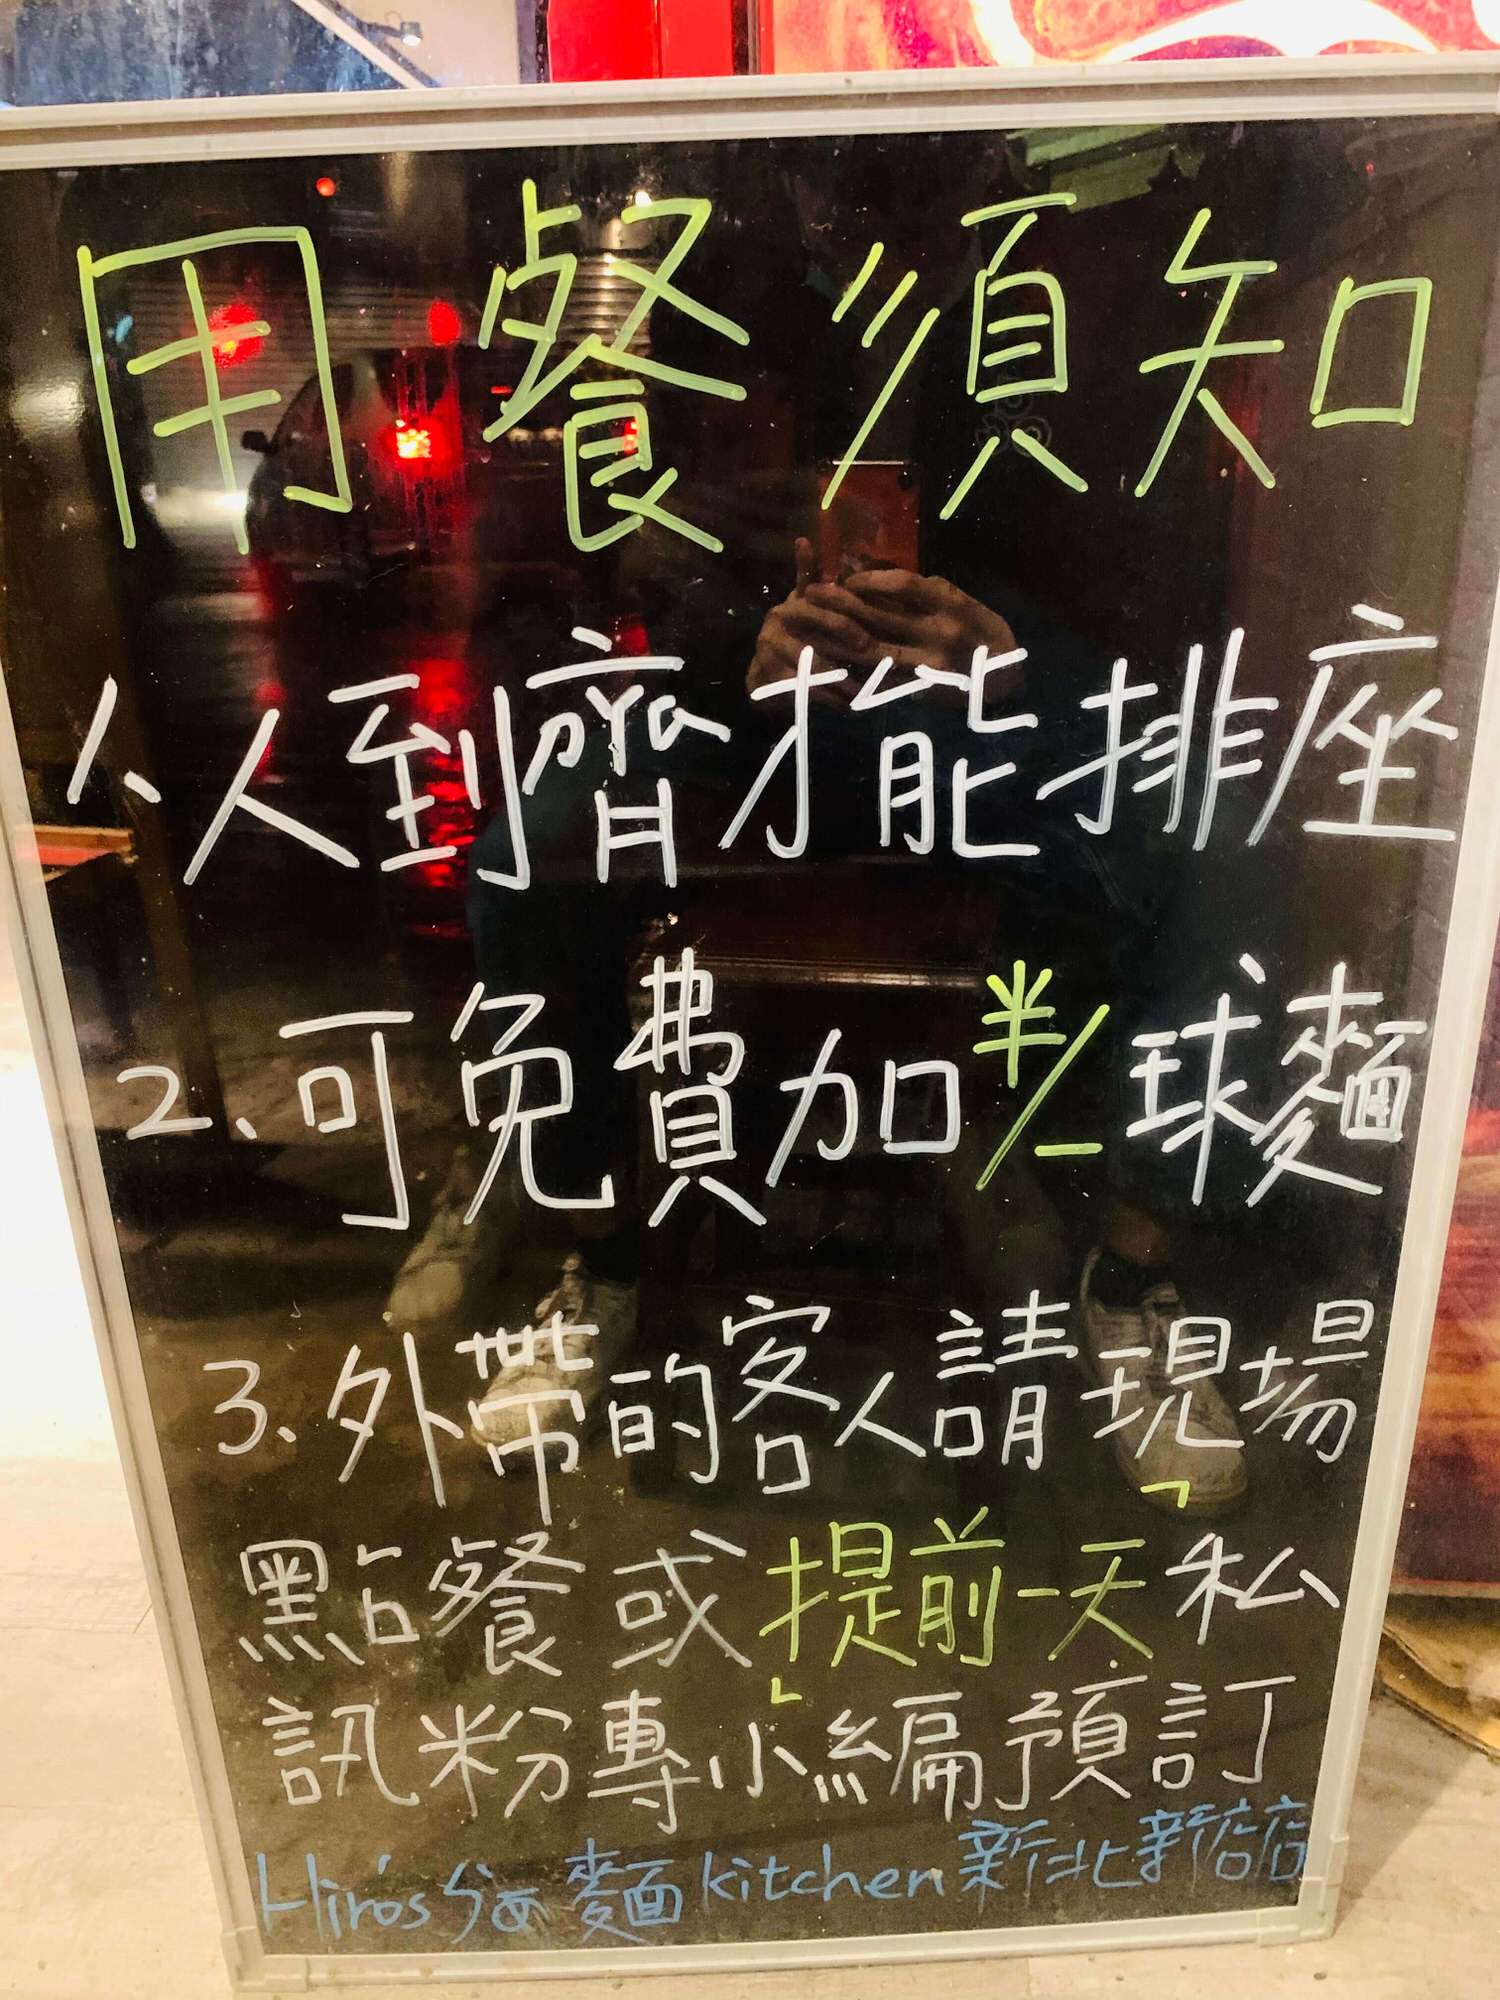 用餐須知
1、人到齊才能排座
2、可免費加半/一球麵
3、外帶的客人請現場
點餐或「提前一天」私
訊粉專小編預訂
Hiro's らぁ麵kitchen新北新店店